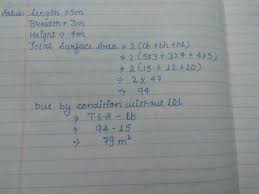 Length = 5m
Breadth = 3m
Height = 4m
Total Surface Area = 2(lb+bh+hl)
⇒ 2(5×3+3×4+4×5)
⇒ 2(15+12+20)
⇒ 2×47
⇒ 94
but by condition without lid
⇒ T.S.A - lb
⇒ 94-15
⇒ 79 m²